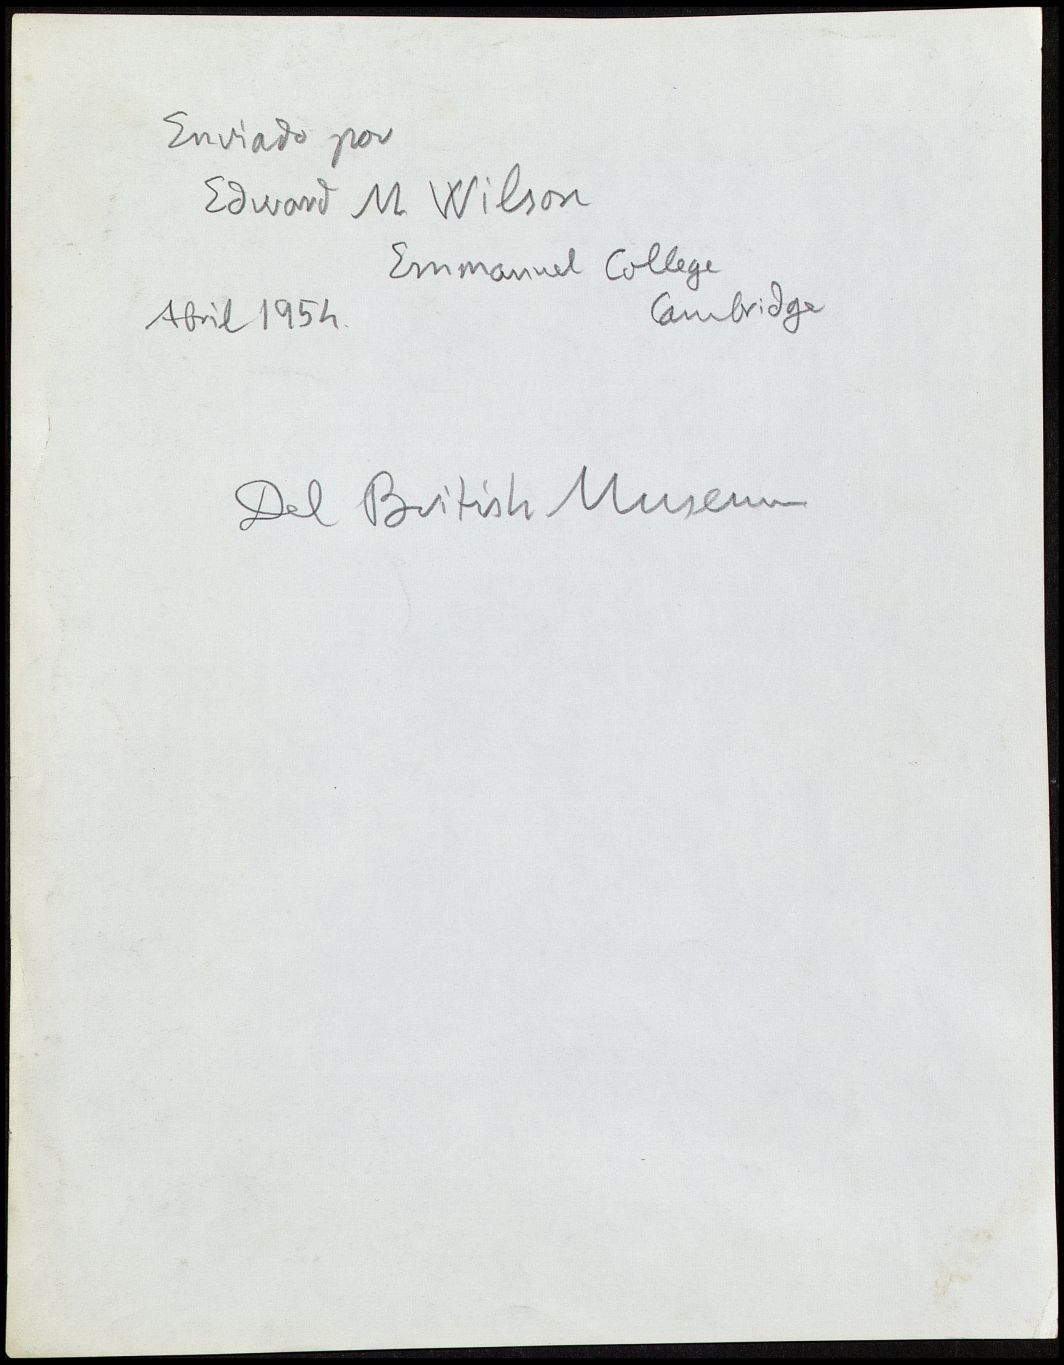 Enviado por
Edward M. Wilson
Emmanuel College
Abril 1954. Cambridge
Del British Museum